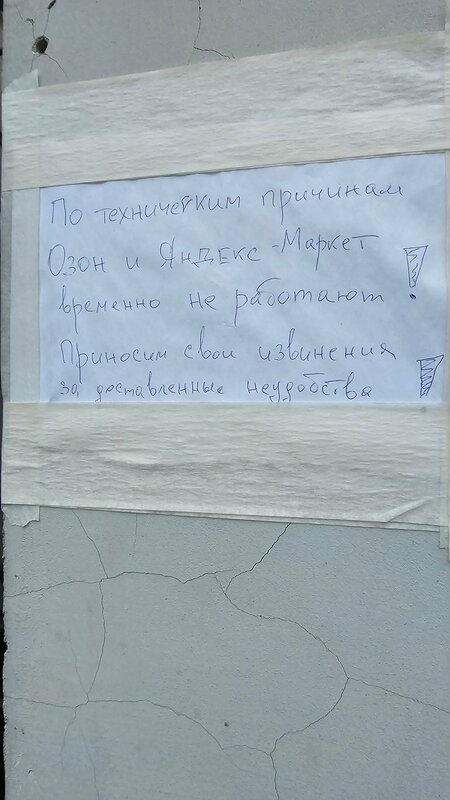 По техническим причинам
Озон и Яндекс-Маркет
временно не работают !
Приносим свои извинения
за доставленные неудобства !